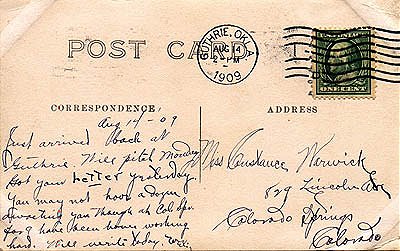 POST CARD
GUTHRIE, OKLA.
AUG 14
PM
1909
ONE CENT
CORRESPONDENCE.
ADDRESS
Aug 14-09
Just arrived back at
Guthrie. Will pitch Monday
Got your letter yesterday
You may not have a
you though at Col Spgs
for I have been hours working
hard. Will write today.
Miss Constance Warwick
829 Lincoln Av
Colorado Springs
Colorado